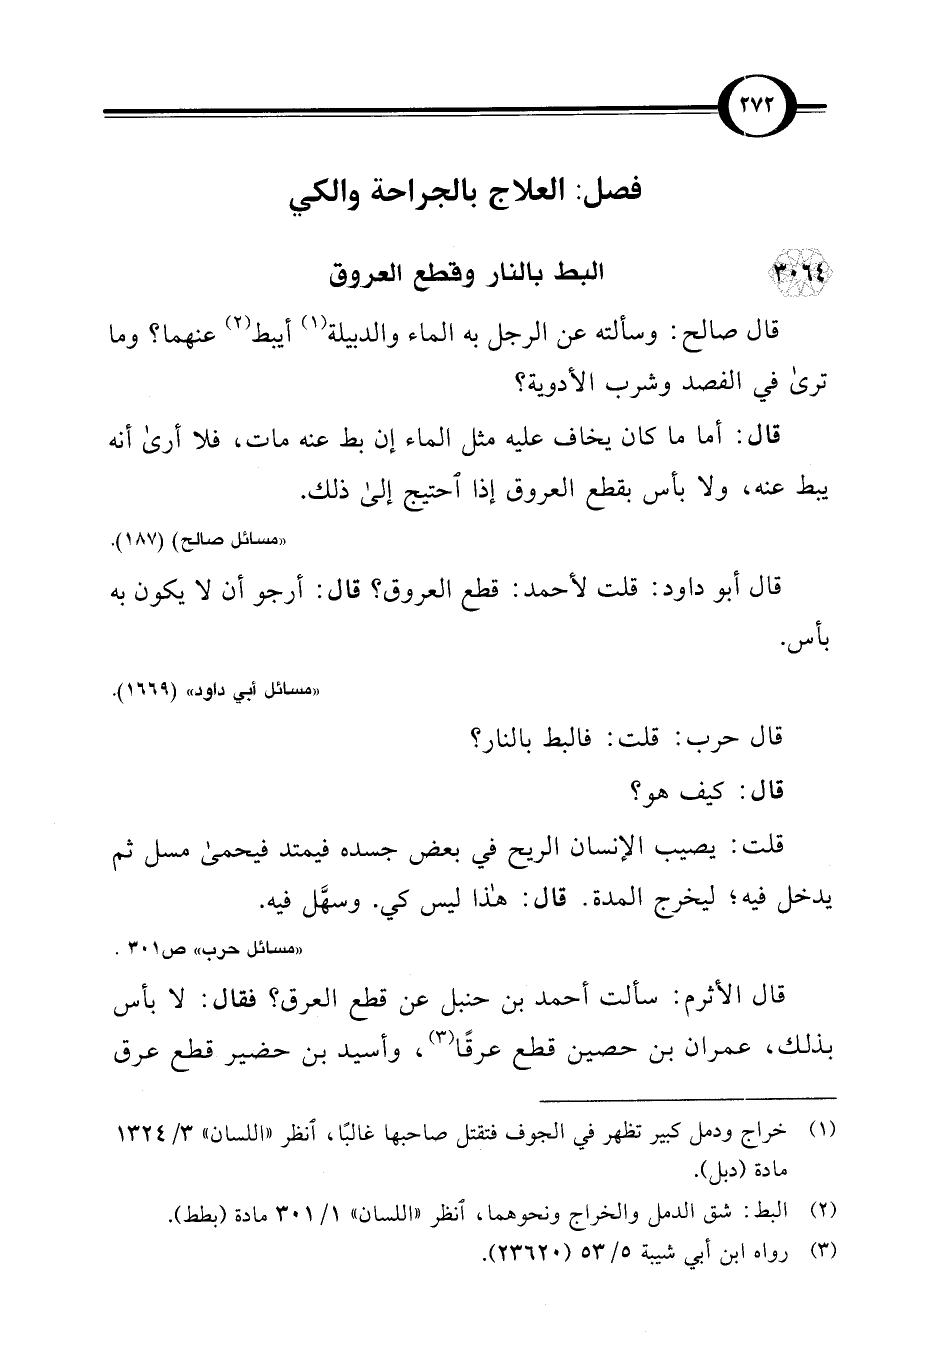 ٢٧٢
فصل: العلاج بالجراحة والكي
٣٠٦٤ البط بالنار وقطع العروق
قال صالح: وسألته عن الرجل به الماء والدبيلة(١) أيبط(٢) عنهما؟ وما
ترىٰ في الفصد وشرب الأدوية؟
قال: أما ما كان يخاف عليه مثل الماء إن بط عنه مات، فلا أرىٰ أنه
يبط عنه، ولا بأس بقطع العروق إذا ٱحتيج إلىٰ ذلك.
«مسائل صالح) (١٨٧).
قال أبو داود: قلت لأحمد: قطع العروق؟ قال: أرجو أن لا يكون به
بأس.
«مسائل أبي داود» (١٦٦٩).
قال حرب: قلت: فالبط بالنار؟
قال: كيف هو؟
قلت: يصيب الإنسان الريح في بعض جسده فيمتد فيحمىٰ مسل ثم
يدخل فيه؛ ليخرج المدة. قال: هذا ليس كي. وسهَّل فيه.
«مسائل حرب» ص٣٠١ .
قال الأثرم: سألت أحمد بن حنبل عن قطع العرق؟ فقال: لا بأس
بذلك، عمران بن حصين قطع عرقًا(٣)، وأسيد بن حضير قطع عرق
(١) خراج ودمل كبير تظهر في الجوف فتقتل صاحبها غالبًا، ٱنظر «اللسان» ٣/ ١٣٢٤
مادة (دبل).
(٢) البط: شق الدمل والخراج ونحوهما، ٱنظر «اللسان» ١/ ٣٠١ مادة (بطط).
(٣) رواه ابن أبي شيبة ٥/ ٥٣ (٢٣٦٢٠).